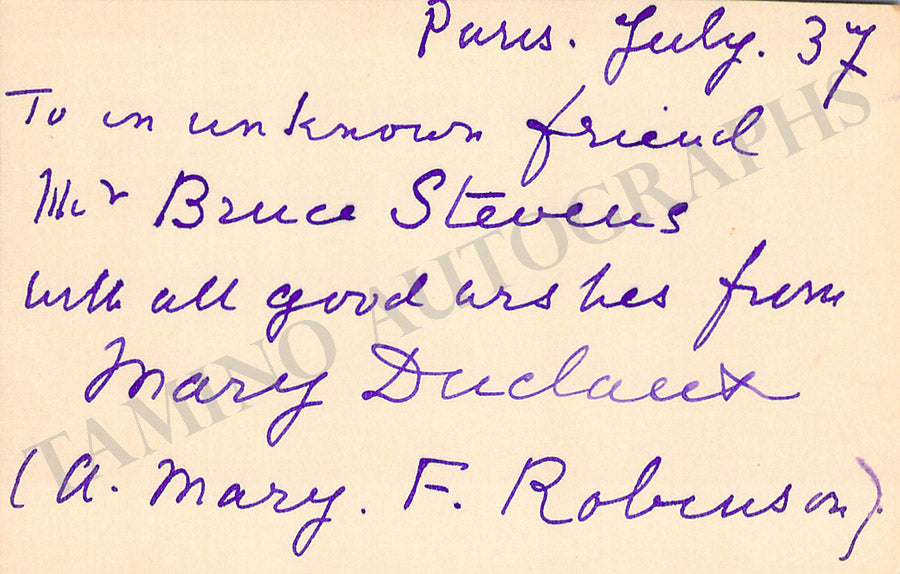 Paris. July. 37
To an unknown friend
Mr Bruce Stevens
with all good wishes from
Mary Duclaux
(A. Mary. F. Robinson).
TAMINO AUTOGRAPHS